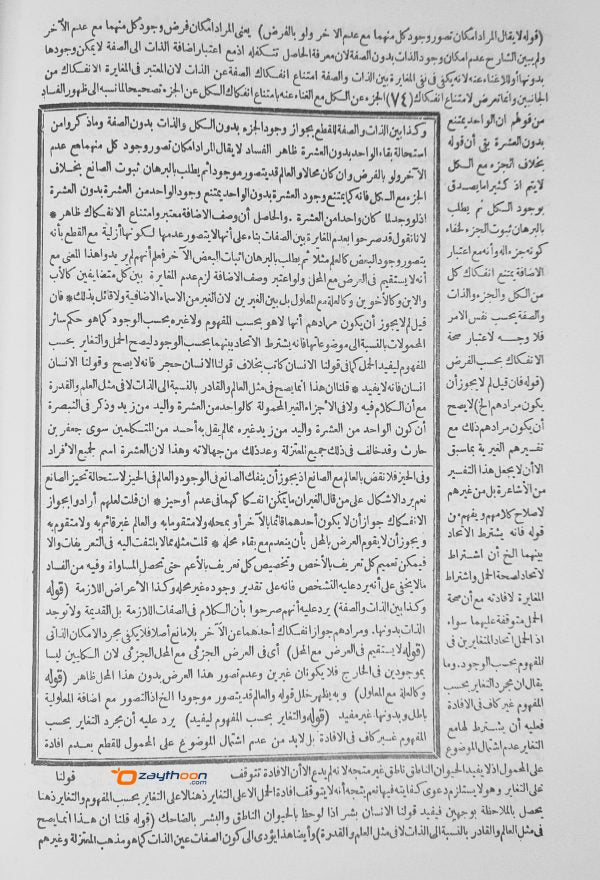 (قوله لا يقال المراد امكان تصور وجود كل منهما مع عدم الآخر ولو بالفرض) يعنى المراد امكان فرض وجود كل منهما مع عدم الآخر
ولم يبين الشارح عدم امكان وجود الذات بدون الصفة لان معرفة الحاصل تتكفله اذ مع اعتبار اضافة الذات الى الصفة لا يمكن وجودها
بدونها أو للاغناء عنه لانه يكفى فى نفى المغايرة بين الذات والصفة امتناع انفكاك الصفة عن الذات لان المعتبر فى المغايرة الانفكاك من
الجانبين وانما تعرض لامتناع انفكاك (٧٤) الجزء عن الكل مع الغناء عنه بامتناع انفكاك الكل عن الجزء تصحيحا لما نسبه الى ظهور الفساد
من قولهم ان الواحد يمتنع
بدون العشرة بقى أن قوله
بخلاف الجزء مع الكل
لا يتم اذ كثيرا ما يصدق
بوجود الكل ثم يطلب
بالبرهان ثبوت الجزء لخفاء
كونه جزءا له وأنه مع اعتبار
الاضافة يمتنع انفكاك كل
من الكل والجزء والذات
والصفة بحسب نفس الامر
فلا وجه لاعتبار صحة
الانفكاك بحسب الفرض
(قوله فان قيل لم لا يجوز أن
يكون مرادهم الخ) لا يصح
أن يكون مرادهم ذلك مع
تفسيرهم الغيرية بما سبق
الا أن لا يجعل هذا التفسير
من الأشاعرة بل من غيرهم
لاصلاح كلامهم ويفهم من
قوله فانه يشترط الاتحاد
بينهما الخ أن اشتراط
الاتحاد لصحة الحمل واشتراط
المغايرة لافادته مع أن صحة
الحمل متوقفة عليهما سواء
اذ الحمل اتحاد المتغايرين فى
المفهوم بحسب الوجود. وما
يقال ان مجرد التغاير بحسب
المفهوم غير كاف فى الافادة
فعليه أن يشترط لها مع
التغاير عدم اشتمال الموضوع
وكذا بين الذات والصفة للقطع بجواز وجود الجزء بدون الكل والذات بدون الصفة وما ذكروا من
استحالة بقاء الواحد بدون العشرة ظاهر الفساد لا يقال المراد امكان تصور وجود كل منهما مع عدم
الآخر ولو بالفرض وان كان محالا والعالم قد يتصور موجودا ثم يطلب بالبرهان ثبوت الصانع بخلاف
الجزء مع الكل فانه كما يمتنع وجود العشرة بدون الواحد يمتنع وجود الواحد من العشرة بدون العشرة
اذ لو وجد لما كان واحدا من العشرة. والحاصل أن وصف الاضافة معتبر وامتناع الانفكاك ظاهر *
لانا نقول قد صرحوا بعدم المغايرة بين الصفات بناء على أنها لا يتصور عدمها لكونها أزلية مع القطع بأنه
يتصور وجود البعض كالعلم مثلا ثم يطلب بالبرهان اثبات البعض الآخر فعلم أنهم لم يريدوا هذا المعنى مع
أنه لا يستقيم فى العرض مع المحل ولو اعتبر وصف الاضافة لزم عدم المغايرة بين كل متضايفين كالأب
والابن وكالأخوين وكالعلة مع المعلول بل بين الغيرين لان الغير من الاسماء الاضافية ولا قائل بذلك * فان
قيل لم لا يجوز أن يكون مرادهم أنها لا هو بحسب المفهوم ولا غيره بحسب الوجود كما هو حكم سائر
المحمولات بالنسبة الى موضوعاتها فانه يشترط الاتحاد بينهما بحسب الوجود ليصح الحمل والتغاير بحسب
المفهوم ليفيد الحمل كما فى قولنا الانسان كاتب بخلاف قولنا الانسان حجر فانه لا يصح وقولنا الانسان
انسان فانه لا يفيد * قلنا ان هذا انما يصح فى مثل العالم والقادر بالنسبة الى الذات لا فى مثل العلم والقدرة
مع أن الكلام فيه ولا فى الأجزاء الغير المحمولة كالواحد من العشرة واليد من زيد وذكر فى التبصرة
أن كون الواحد من العشرة واليد من زيد غيره مما لم يقل به أحد من المتكلمين سوى جعفر بن
حارث وقد خالف فى ذلك جميع المعتزلة وعد ذلك من جهالاته وهذا لان العشرة اسم لجميع الافراد
وفى الحيز فلا نقض بالعالم مع الصانع اذ يجوز أن ينفك الصانع فى الوجود والعالم فى الحيز لاستحالة تحيز الصانع
نعم يرد الاشكال على من قال الغيران ما يمكن انفكاكهما فى عدم أو حيز * ان قلت لعلهم أرادوا بجواز
الانفكاك جواز أن لا يكون أحدهما قائما بالآخر أو بمحله ولا متقوما به والعالم غير قائم به ولا متقوم به
ويجوز أن لا يقوم العرض بالمحل بأن ينعدم مع بقاء محله * قلت مثله مما لا يلتفت اليه فى التعريفات والا
فيمكن تعميم كل تعريف بالأخص وتخصيص كل تعريف بالأعم حتى تحصل المساواة وفيه من الفساد
ما لا يخفى على أنه يرد عليه التشخص فانه على تقدير وجوده غير محله وكذا الأعراض اللازمة (قوله
وكذا بين الذات والصفة) يرد عليه أنهم صرحوا بأن الكلام فى الصفات اللازمة بل القديمة ولا توجد
الذات بدونها. ومرادهم جواز انفكاك أحدهما عن الآخر بلا مانع أصلا فلا يكفى مجرد الامكان الذاتى
(قوله لا يستقيم فى العرض مع المحل) أى فى العرض الجزئى مع المحل الجزئى لان الكليين ليسا
بموجودين فى الخارج فلا يكونان غيرين وعدم تصور هذا العرض بدون هذا المحل ظاهر (قوله
وكالعلة مع المعلول) وبه يظهر خلل قوله والعالم قد يتصور موجودا الخ اذ التصور مع اضافة المعلولية
باطل وبدونها غير مفيد (قوله والتغاير بحسب المفهوم ليفيد) يرد عليه أن مجرد التغاير بحسب
المفهوم غير كاف فى الافادة بل لا بد من عدم اشتمال الموضوع على المحمول للقطع بعدم افادة
قولنا
على المحمول اذ لا يفيد الحيوان الناطق ناطق غير متجه لانه لم يدع الا أن الافادة تتوقف
على التغاير وهو لا يستلزم دعوى كفايته فيها نعم يتجه أنه لا يتوقف افادة الحمل الا على التغاير ذهنا لا على التغاير بحسب المفهوم والتغاير ذهنا
يحصل بالملاحظة بوجهين فيفيد قولنا الانسان بشر اذا لوحظ بالحيوان الناطق والبشر بالضاحك (قوله قلنا ان هذا انما يصح
فى مثل العالم والقادر بالنسبة الى الذات لا فى مثل العلم والقدرة) وأيضا هذا يؤدى الى كون الصفات عين الذات كما هو مذهب المعتزلة وغيرهم
ozaythoon
.com